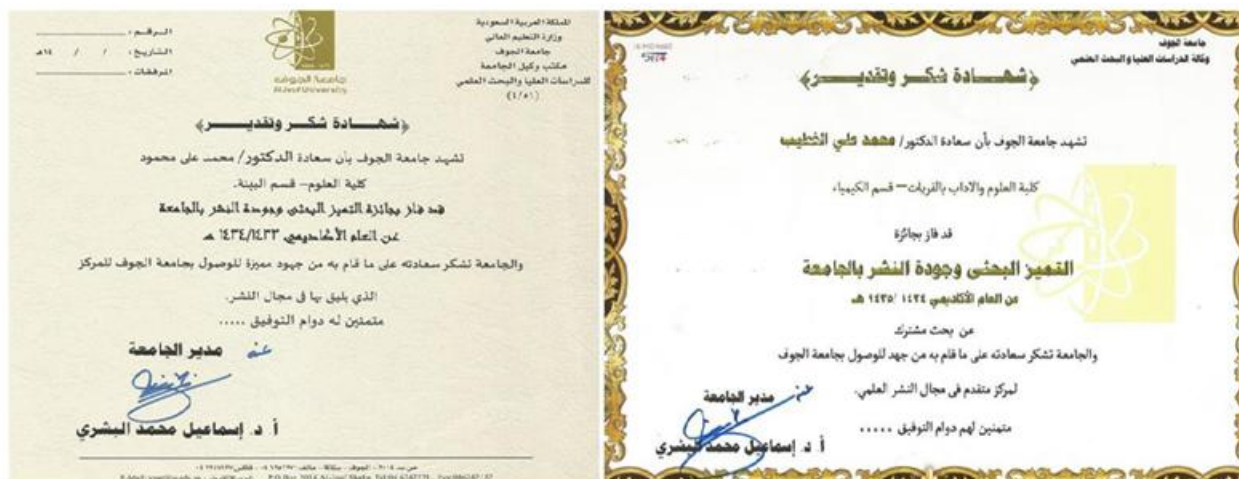 الـرقـم :
التـاريـخ : / / ١٤هـ
المرفقات :
جامعة الجوف
AlJouf University
المملكة العربية السعودية
وزارة التعليم العالي
جامعة الجوف
مكتب وكيل الجامعة
للدراسات العليا والبحث العلمي
(٤/٥١)
﴿شهـــــادة شكـــر وتقديـــــــر﴾
تشهد جامعة الجوف بأن سعادة الدكتور/ محمد على محمود
كلية العلوم– قسم البيئة.
قد فاز بجائزة التميز البحثى وجودة النشر بالجامعة
عن العام الأكاديمي ١٤٣٤/١٤٣٣ هـ
والجامعة تشكر سعادته على ما قام به من جهود مميزة للوصول بجامعة الجوف للمركز
الذي يليق بها فى مجال النشر.
متمنين له دوام التوفيق .....
مدير الجامعة
أ د. إسماعيل محمد البشري
جامعة الجوف
وكالة الدراسات العليا والبحث العلمي
﴿شهـــــادة شكـــر وتقديـــــــر﴾
تشهد جامعة الجوف بأن سعادة الدكتور/ محمد علي الخطيب
كلية العلوم والاداب بالقريات– قسم الكيمياء
قد فاز بجائزة
التميز البحثى وجودة النشر بالجامعة
عن العام الأكاديمي ١٤٣٤ /١٤٣٥ هـ
عن بحث مشترك
والجامعة تشكر سعادته على ما قام به من جهد للوصول بجامعة الجوف
لمركز متقدم فى مجال النشر العلمي.
متمنين لهم دوام التوفيق .....
مدير الجامعة
أ د. إسماعيل محمد البشري